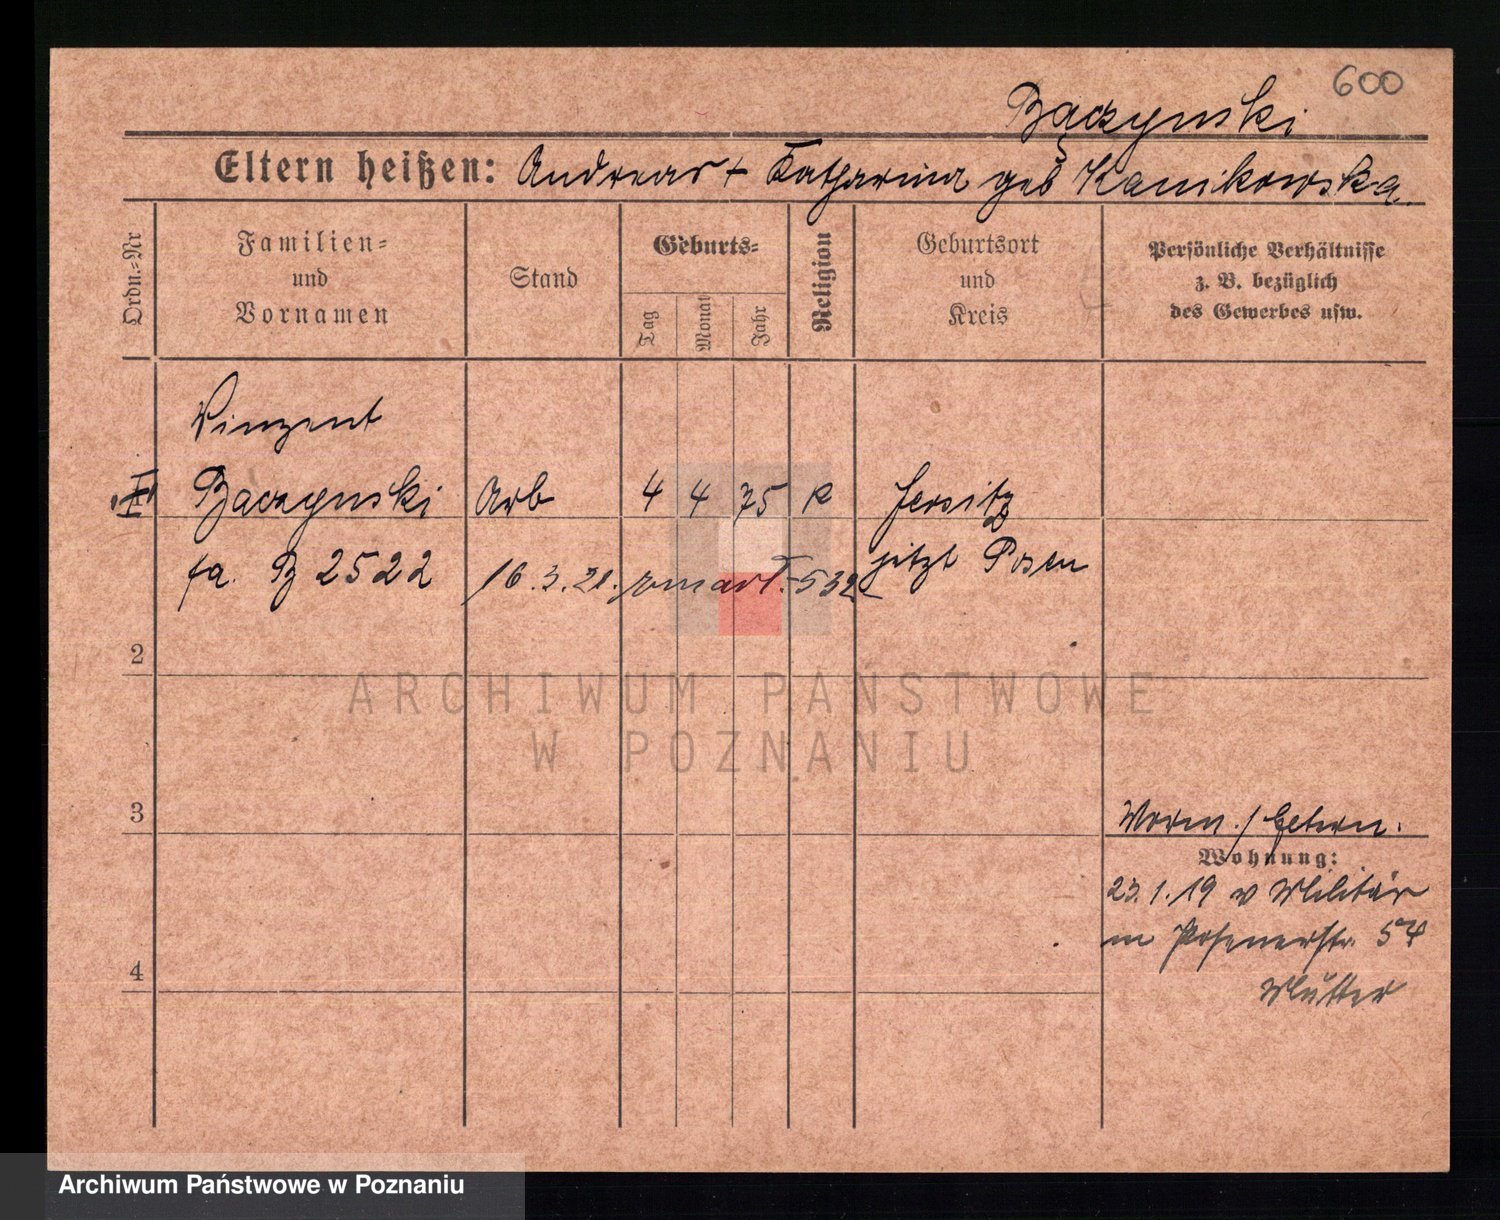 600
Bączynski
Eltern heißen: Andreas + Katharina geb Kanikowska.
Ordn.-Nr
Familien-
und
Vornamen
Stand
Geburts-
Tag
Monat
Jahr
Religion
Geburtsort
und
Kreis
Persönliche Verhältnisse
z. B. bezüglich
des Gewerbes usw.
Vinzent
Baczynski Arb 4 4 75 K Jersitz
fa. B 2522 16.3.21. jetzt Posen
2
3
4
Worm. / Eltern.
Wohnung:
23.1.19 v Militär
m Posenerstr. 54
Mutter
ARCHIWUM PAŃSTWOWE
W POZNANIU
Archiwum Państwowe w Poznaniu